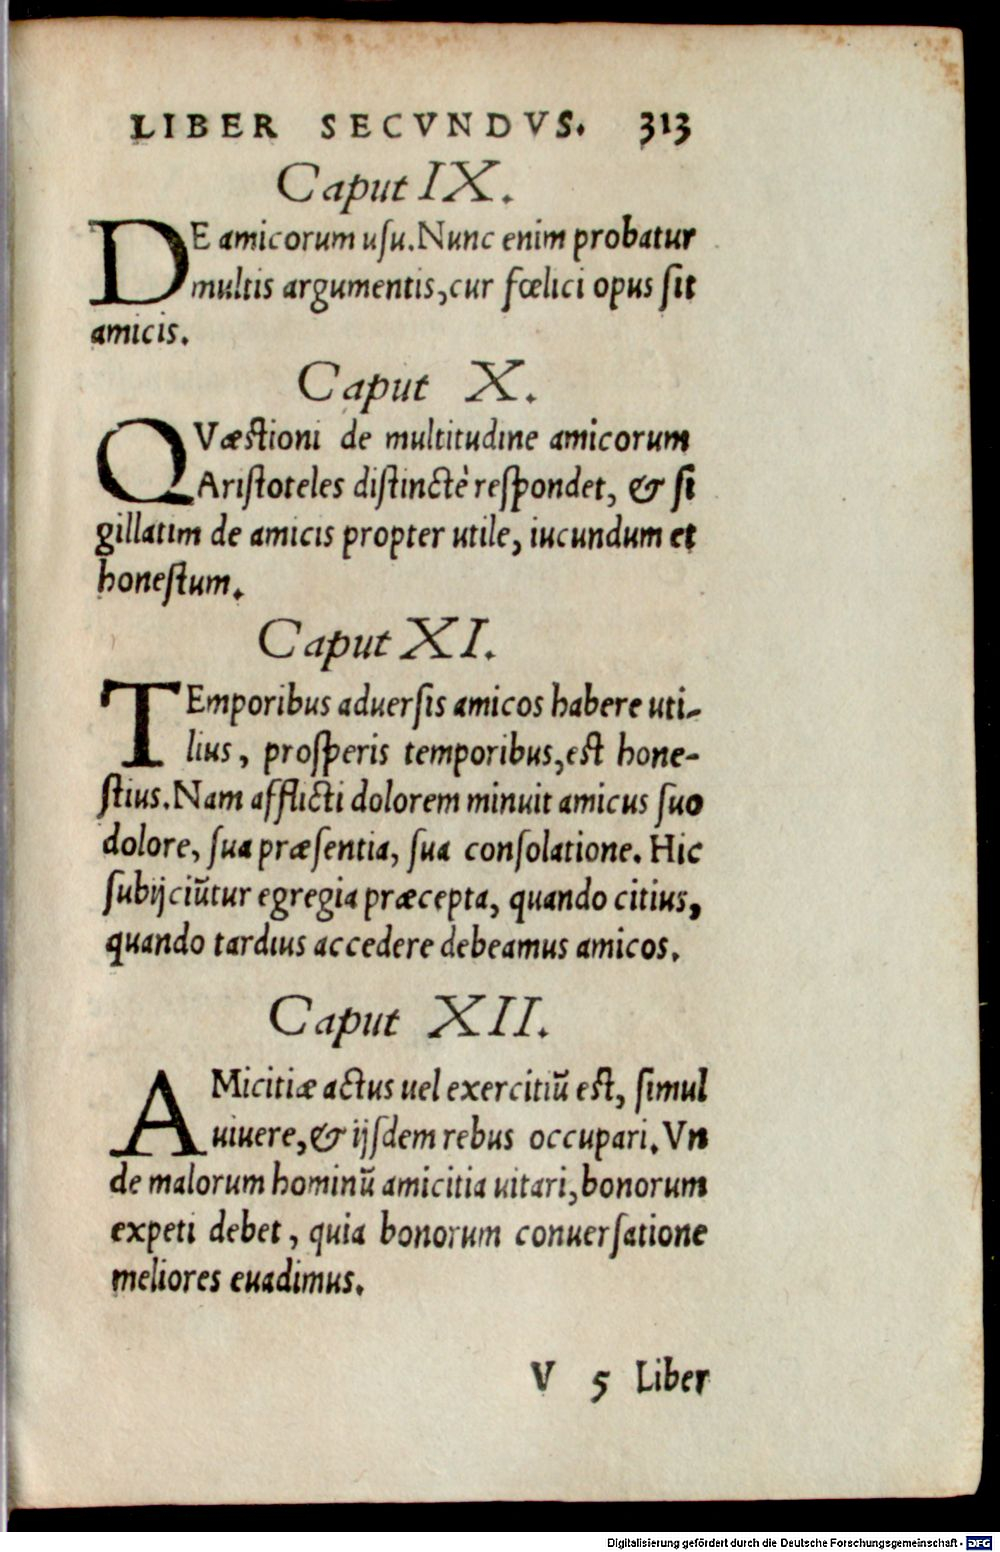 LIBER SECVNDVS. 313
Caput IX.
DE amicorum uſu. Nunc enim probatur
multis argumentis, cur fœlici opus ſit
amicis.
Caput X.
QVæſtioni de multitudine amicorum
Ariſtoteles diſtinctè reſpondet, & ſi
gillatim de amicis propter utile, iucundum et
honeſtum.
Caput XI.
TEmporibus aduerſis amicos habere uti-
lius, proſperis temporibus, eſt hone-
ſtius. Nam afflicti dolorem minuit amicus ſuo
dolore, ſua præſentia, ſua conſolatione. Hic
ſubijciũtur egregia præcepta, quando citius,
quando tardius accedere debeamus amicos.
Caput XII.
AMicitiæ actus uel exercitiũ eſt, ſimul
uiuere, & ijſdem rebus occupari. Vn
de malorum hominũ amicitia uitari, bonorum
expeti debet, quia bonorum conuerſatione
meliores euadimus.
V 5 Liber
Digitalisierung gefördert durch die Deutsche Forschungsgemeinschaft - DFG